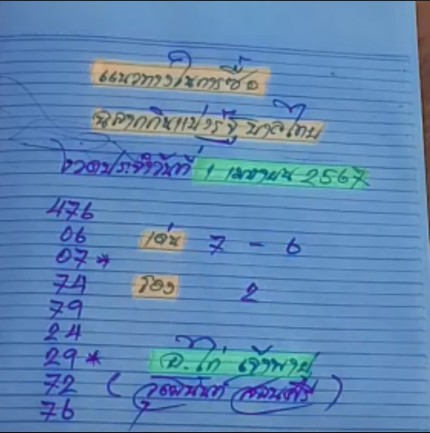 แนวทางในการซื้อ
สลากกินแบ่งรัฐบาลไทย
งวดประจำวันที่ 1 เมษายน 2567
476
06 เด่น 7 - 6
07 *
74 รอง 2
79
24
29 * อ. ไก่ เจ้าพายุ
72
76